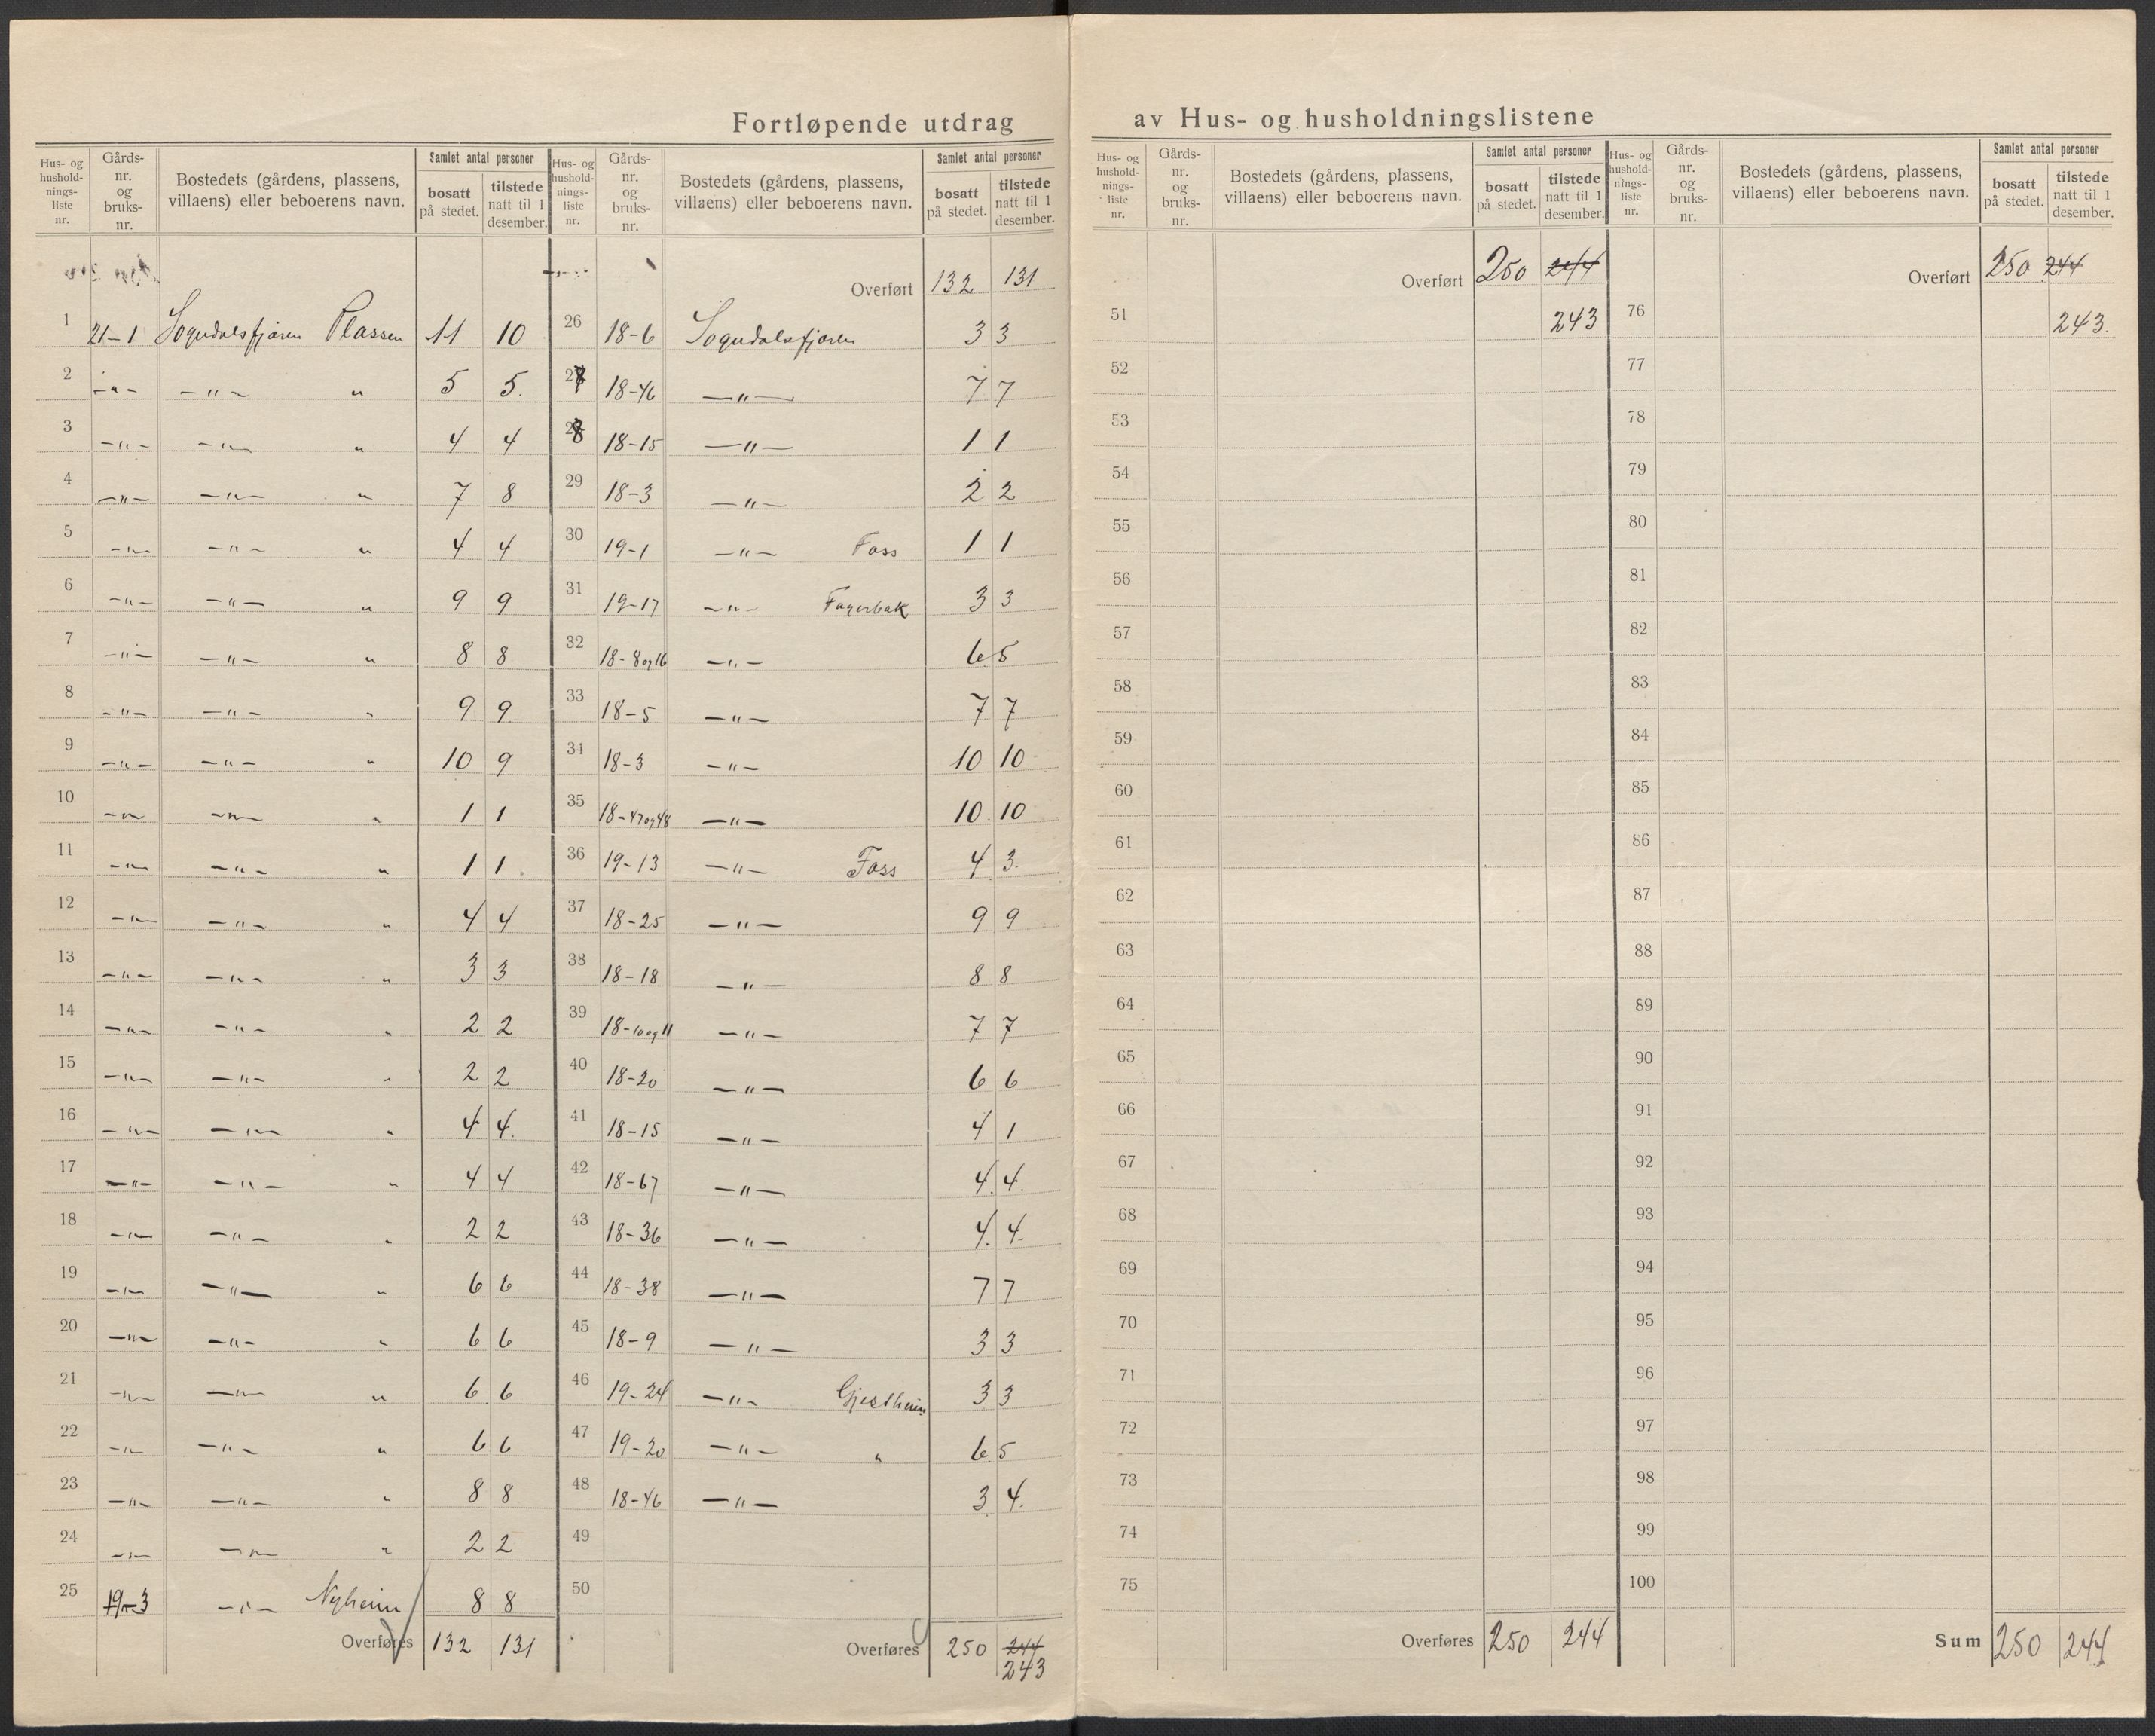 Fortløpende utdrag av Hus- og husholdningslistene
Hus- og hushold-nings-liste nr. | Gårds-nr. og bruks-nr. | Bostedets (gårdens, plassens, villaens) eller beboerens navn. | Samlet antal personer | bosatt på stedet. | tilstede natt til 1 desember.
1 21-1 Sogndalsfjøren Plassen 11 10
2 -"- -"- " 5 5.
3 -"- -"- " 4 4
4 -"- -"- " 7 8
5 -"- -"- " 4 4
6 -"- -"- " 9 9
7 -"- -"- " 8 8
8 -"- -"- " 9 9
9 -"- -"- " 10 9
10 -"- -"- " 1 1
11 -"- -"- " 1 1.
12 -"- -"- " 4 4
13 -"- -"- " 3 3
14 -"- -"- " 2 2
15 -"- -"- " 2 2
16 -"- -"- " 4 4.
17 -"- -"- " 4 4
18 -"- -"- " 2 2
19 -"- -"- " 6 6
20 -"- -"- " 6 6
21 -"- -"- " 6 6
22 -"- -"- " 6 6
23 -"- -"- " 8 8
24 -"- -"- " 2 2
25 19-3 -"- Nyheim 8 8
Overføres 132 131
Hus- og hushold-nings-liste nr. | Gårds-nr. og bruks-nr. | Bostedets (gårdens, plassens, villaens) eller beboerens navn. | Samlet antal personer | bosatt på stedet. | tilstede natt til 1 desember.
Overført 132 131
26 18-6 Sogndalsfjøren 3 3
27 18-46 -"- 7 7
28 18-15 -"- 1 1
29 18-3 -"- 2 2
30 19-1 -"- Foss 1 1
31 19-17 -"- Fagerbak 3 3
32 18-8 og 16 -"- 6 5
33 18-5 -"- 7 7
34 18-3 -"- 10 10
35 18-47 og 48 -"- 10 10
36 19-13 -"- Foss 4 3.
37 18-25 -"- 9 9
38 18-18 -"- 8 8
39 18-10 og 11 -"- 7 7
40 18-20 -"- 6 6
41 18-15 -"- 4 1
42 18-67 -"- 4. 4.
43 18-36 -"- 4. 4.
44 18-38 -"- 7 7
45 18-9 -"- 3 3
46 19-24 -"- Gjestheim 3 3
47 19-20 -"- " 6 5
48 18-46 -"- 3 4.
49
50
Overføres 250 244
243
Hus- og hushold-nings-liste nr. | Gårds-nr. og bruks-nr. | Bostedets (gårdens, plassens, villaens) eller beboerens navn. | Samlet antal personer | bosatt på stedet. | tilstede natt til 1 desember.
Overført 250 244
51 243
52
53
54
55
56
57
58
59
60
61
62
63
64
65
66
67
68
69
70
71
72
73
74
75
Overføres 250 244
Hus- og hushold-nings-liste nr. | Gårds-nr. og bruks-nr. | Bostedets (gårdens, plassens, villaens) eller beboerens navn. | Samlet antal personer | bosatt på stedet. | tilstede natt til 1 desember.
Overført 250 244
76 243.
77
78
79
80
81
82
83
84
85
86
87
88
89
90
91
92
93
94
95
96
97
98
99
100
Sum 250 244